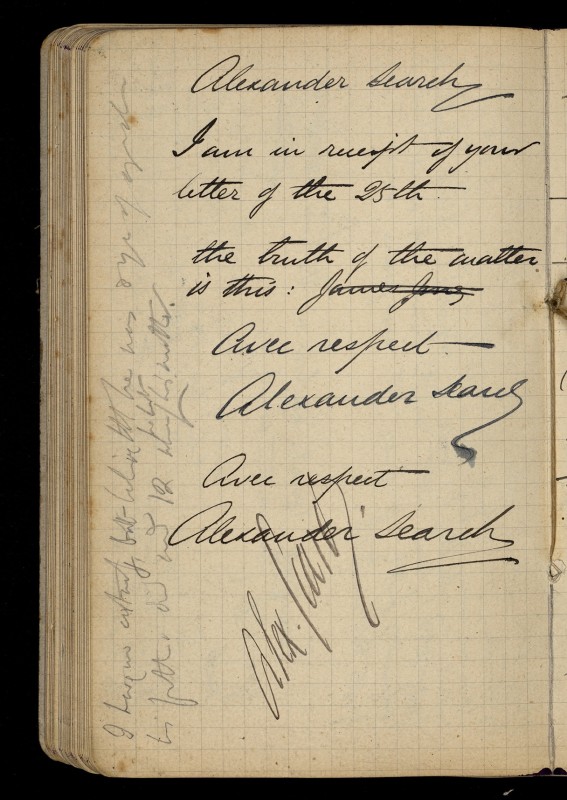 Alexander Search
I am in receipt of your
letter of the 25th.
the truth of the matter
is this: James Jones
Avec respect
Alexander Search
Avec respect
Alexander Search
Alex. Search
he was
his father did and 12